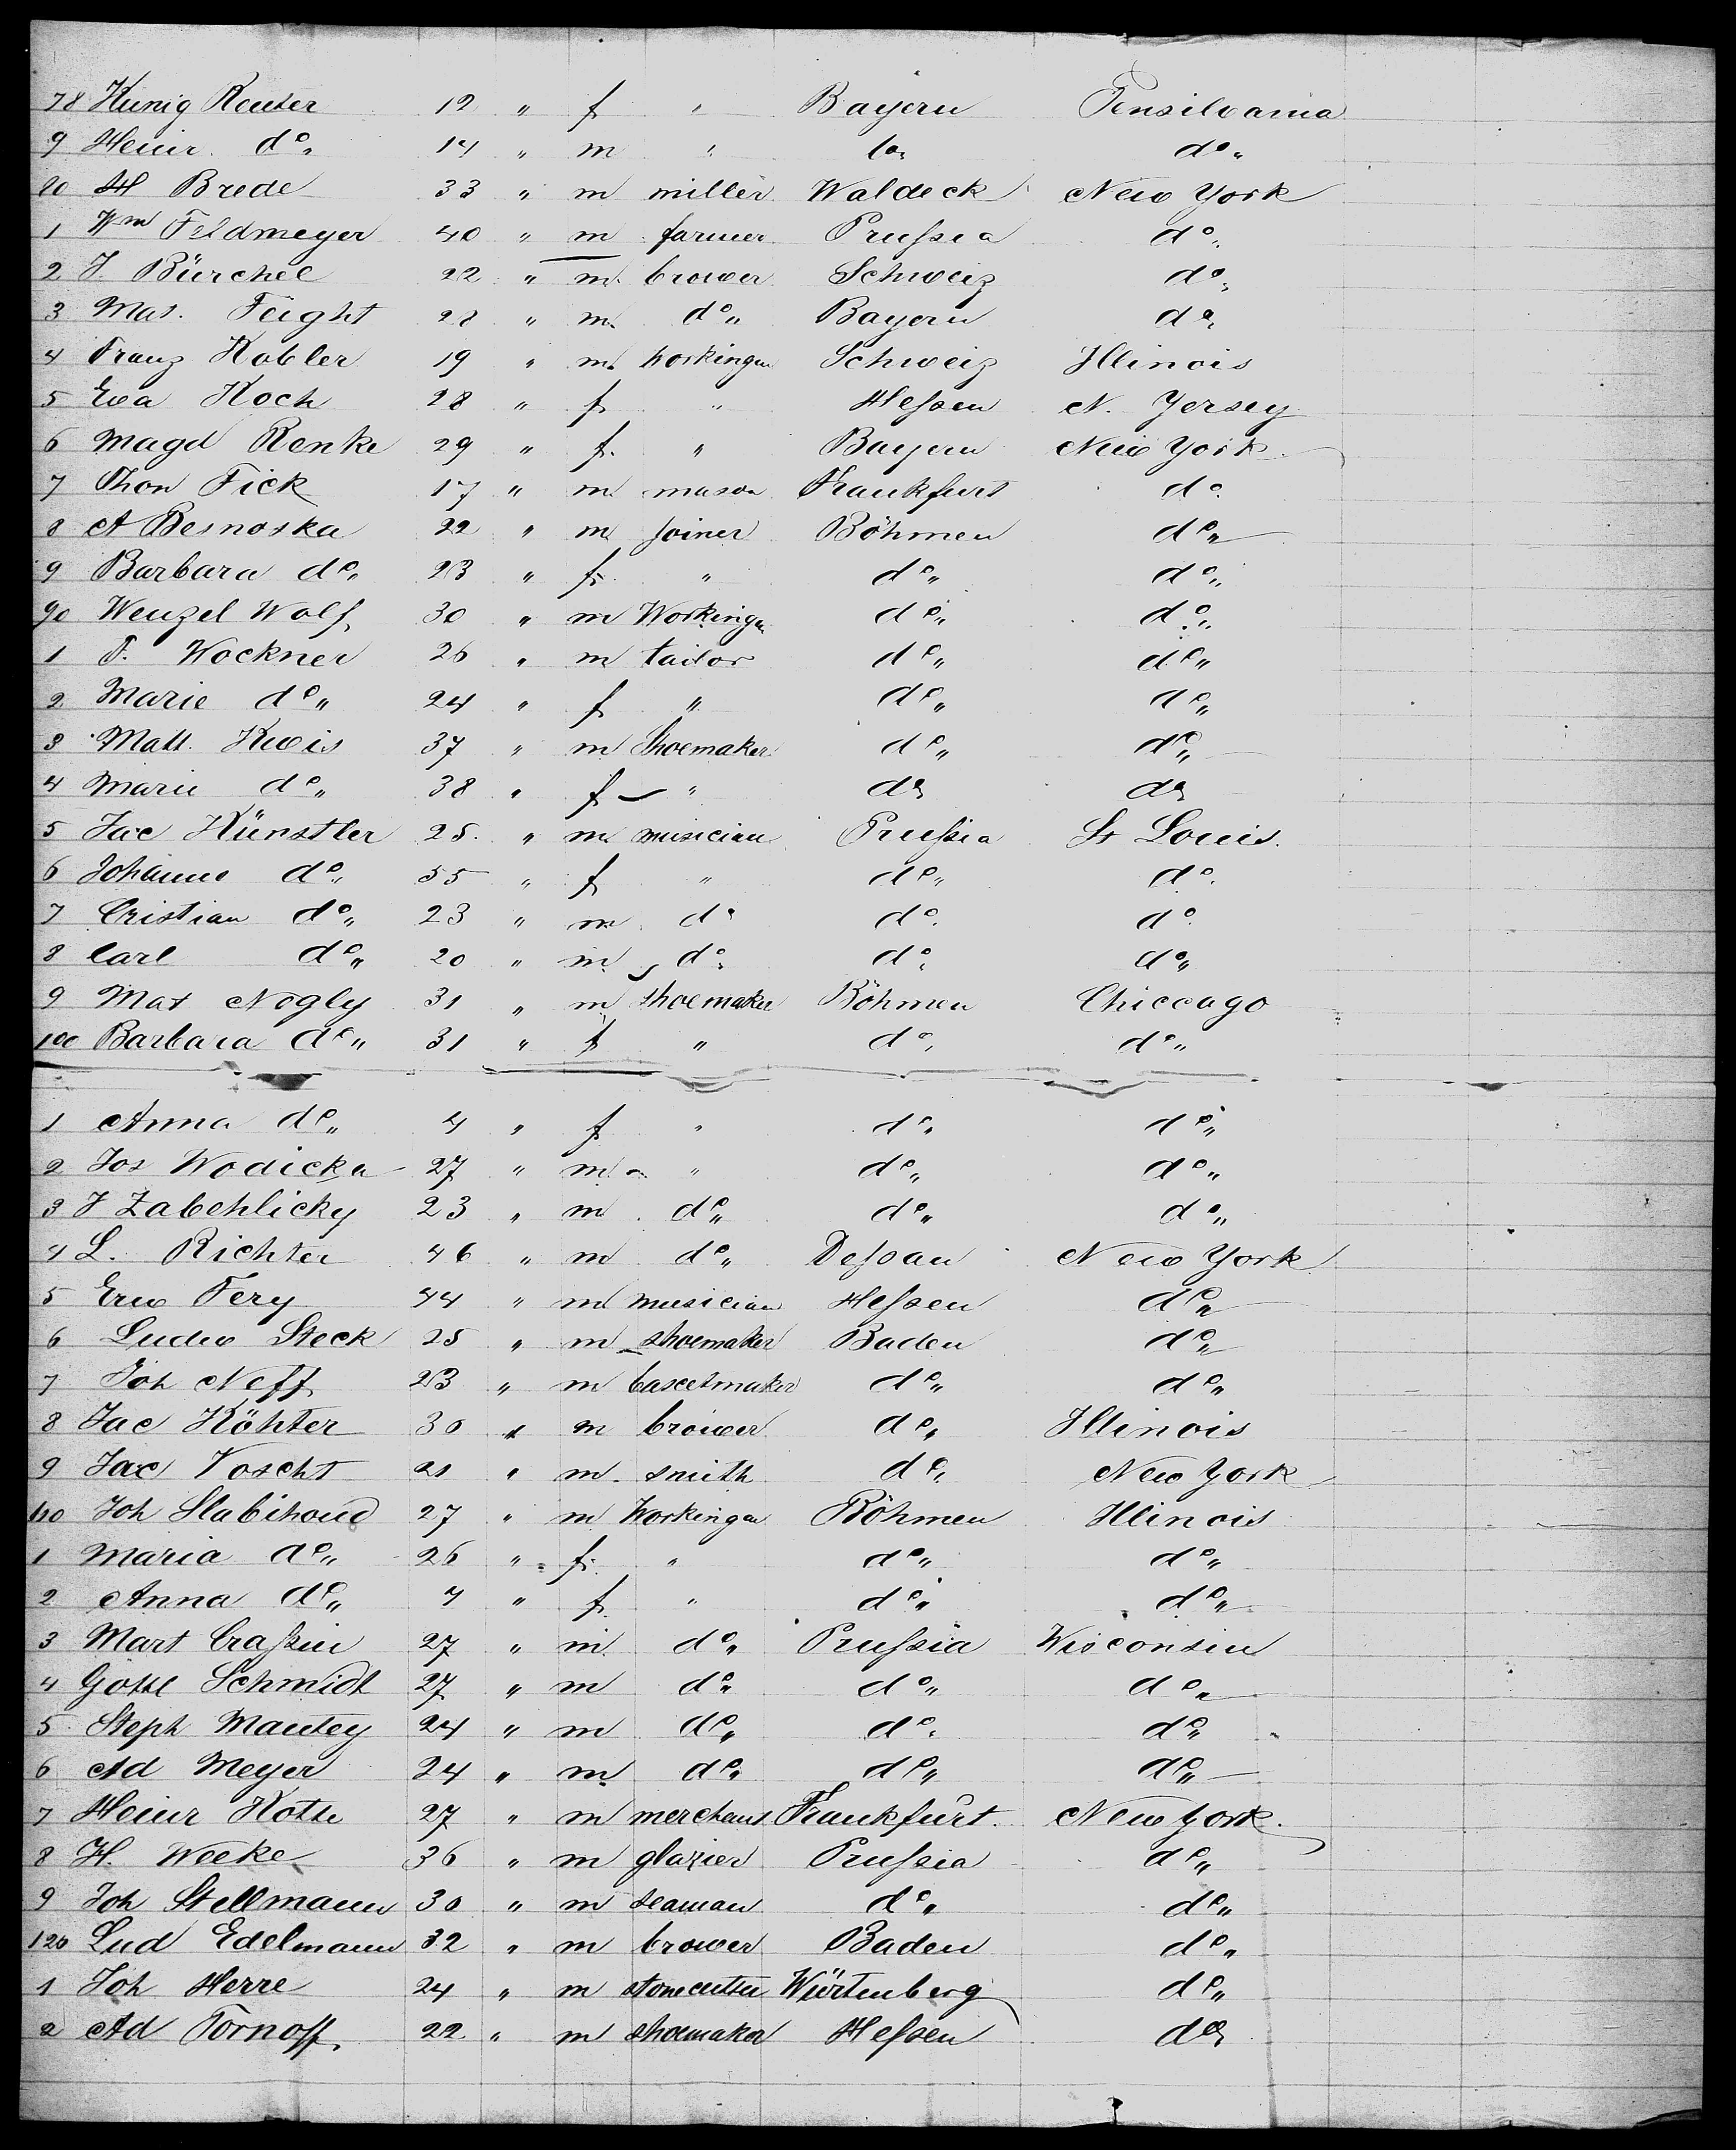 78 Kunig Reuter 12 " f " Bayern Pensilvania
9 Heinr. do " 14 " m " do " do "
80 H Brede 33 " m miller Waldeck New York
1 Wm Feldmeyer 40 " m farmer Prussia do "
2 J. Bürchel 22 " m. brower Schweiz do "
3 Mat. Feight 28 " m. do " Bayern do "
4 Franz Kobler 19 " m. workingm Schweiz Illinois
5 Eva Koch 28 " f " Hessen N. Yersey
6 Magd Renke 29 " f. " Bayern New York
7 Thon Fick 17 " m mason Frankfurt do
8 A Besnoska 22 " m joiner Böhmen do "
9 Barbara do " 23 " f " do " do "
90 Wenzel Wolf 30 " m Workingm do " do "
1 F. Wockner 26 " m tailor do " do "
2 Marie do " 24 " f " do " do "
3 Matt. Kweis 37 " m Shoemaker do " do "
4 Marie do " 38 " f " do " do "
5 Jac Künstler 25. " m musician Prussia St Louis.
6 Johanne do " 55 " f " do " do
7 Cristian do " 23 " m do do do
8 Carl do " 20 " m do do do "
9 Mat Nogly 31 " m shoemaker Böhmen Chiccago
100 Barbara do " 31 " f " do do "
1 Anna do " 4 " f " do " do "
2 Jos Wodicka 27 " m " do " do "
3 J Zabehlicky 23 " m do " do " do "
4 L. Richter 46 " m do " Dessau New York
5 Erw Fery 44 " m musician Hessen do "
6 Ludw Steck 25 " m shoemaker Baden do "
7 Joh Neff 23 " m bascetmaker do " do "
8 Jac Köhter 30 " m brower do " Illinois
9 Jac Voscht 21 " m. smith do " New York
110 Joh Slabihoud 27 " m Workingm Böhmen Illinois
1 Maria do " 26 " f. " do " do "
2 Anna do " 7 " f " do " do "
3 Mart Crassin 27 " m. do " Prussia Wisconsin
4 Gottl Schmidt 27 " m do " do " do "
5 Steph Mantey 24 " m do " do " do "
6 Ad Meyer 24 " m do " do " do "
7 Heinr Kothe 27 " m merchant Frankfurt New York.
8 H. Weeke 36 " m glazier Prussia do "
9 Joh Stellmann 30 " m seaman do " do "
120 Lud Edelmann 32 " m brower Baden do "
1 Joh Herre 24 " m stonecutter Würtenberg do "
2 Ad Tornoff 22 " m shoemaker Hessen do "